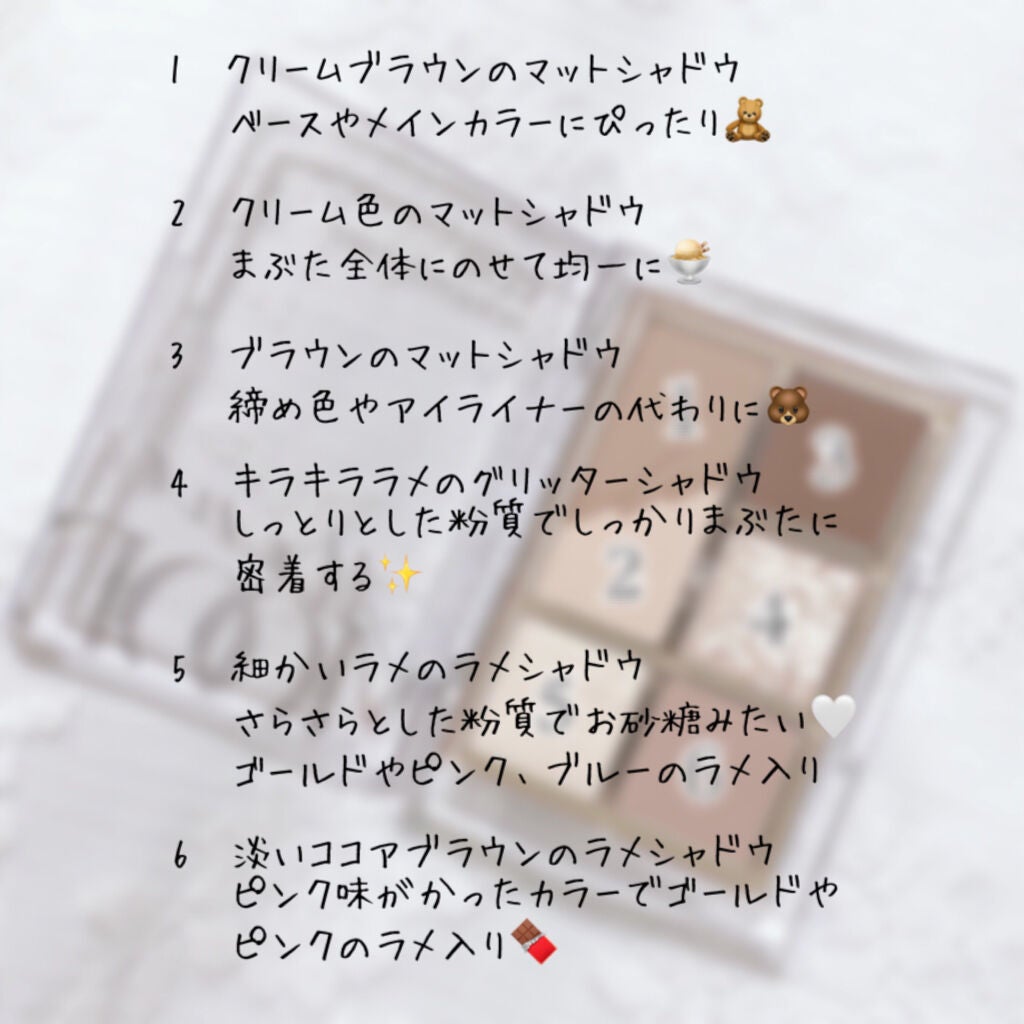 1 クリームブラウンのマットシャドウ
ベースやメインカラーにぴったり🧸
2 クリーム色のマットシャドウ
まぶた全体にのせて均一に🍨
3 ブラウンのマットシャドウ
締め色やアイライナーの代わりに🐻
4 キラキララメのグリッターシャドウ
しっとりとした粉質でしっかりまぶたに
密着する✨
5 細かいラメのラメシャドウ
さらさらとした粉質でお砂糖みたい🤍
ゴールドやピンク、ブルーのラメ入り
6 淡いココアブラウンのラメシャドウ
ピンク味がかったカラーでゴールドや
ピンクのラメ入り🍫
1
3
2
4